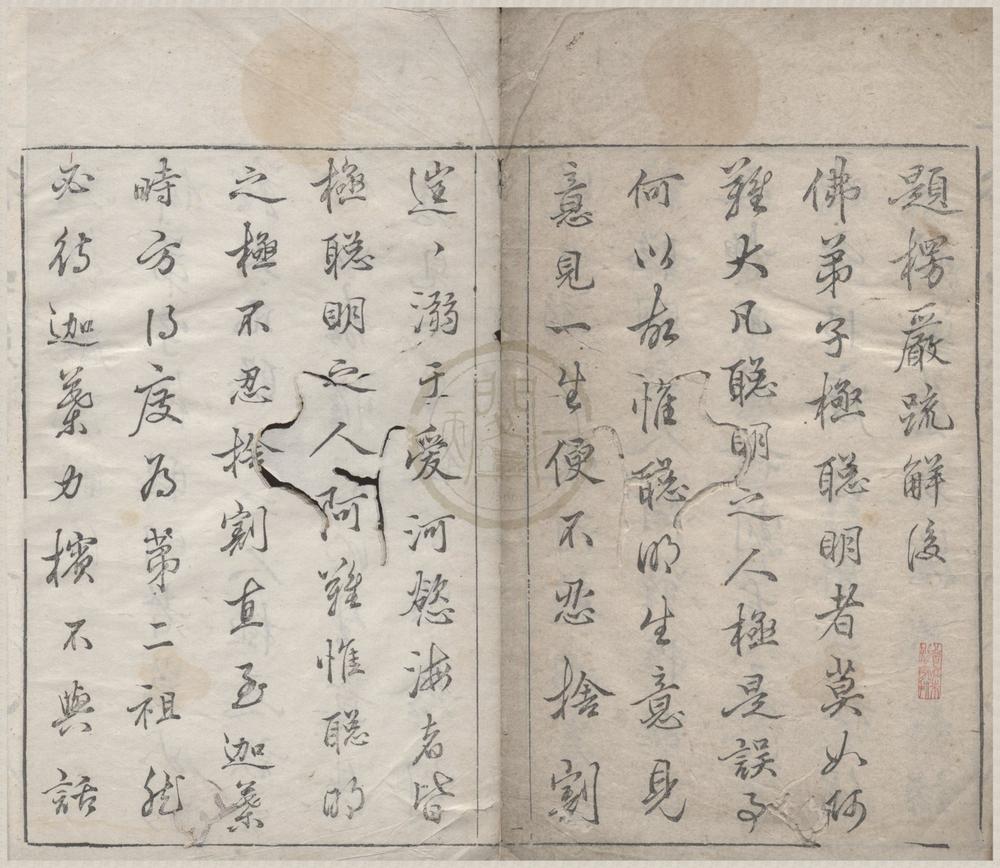 題楞嚴疏解後
佛弟子極聰明者莫如阿
難大凡聰明之人極是誤事
何以故惟聰明生意見
意見一生便不忍捨割
往往溺于愛河慾海者皆
極聰明之人阿難惟聰明
之極不忍捨割直至迦葉
時方得度為第二祖然
必待迦葉力擯不與話